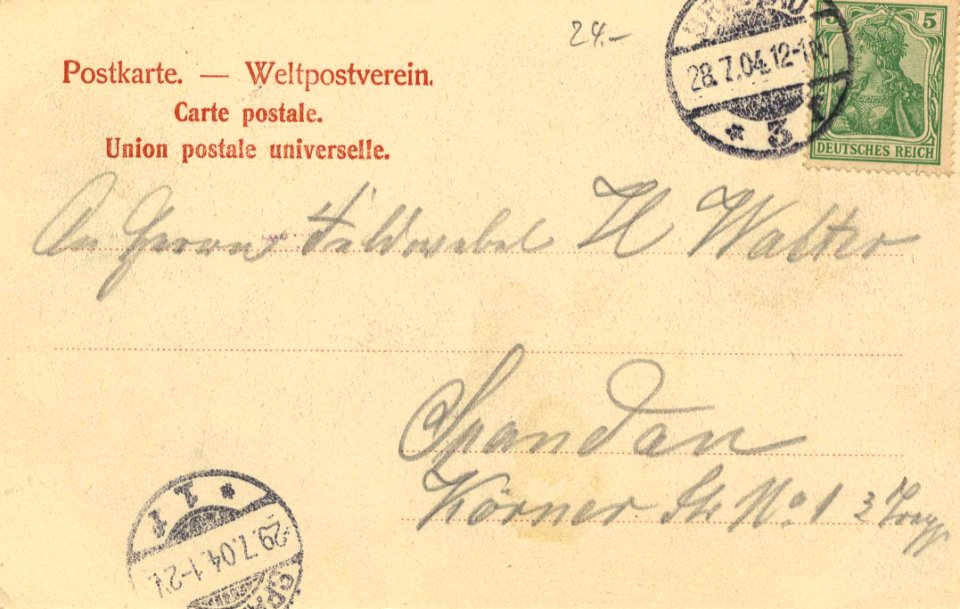 24.-
28.7.04.12-1N.
* 3 r
5 5
DEUTSCHES REICH
Postkarte. — Weltpostverein.
Carte postale.
Union postale universelle.
An Herrn Feldwebel H Walter
Spandau
Körner Str No 1 3 Trepp
* 1 r
29.7.04.1-2N.
SPA